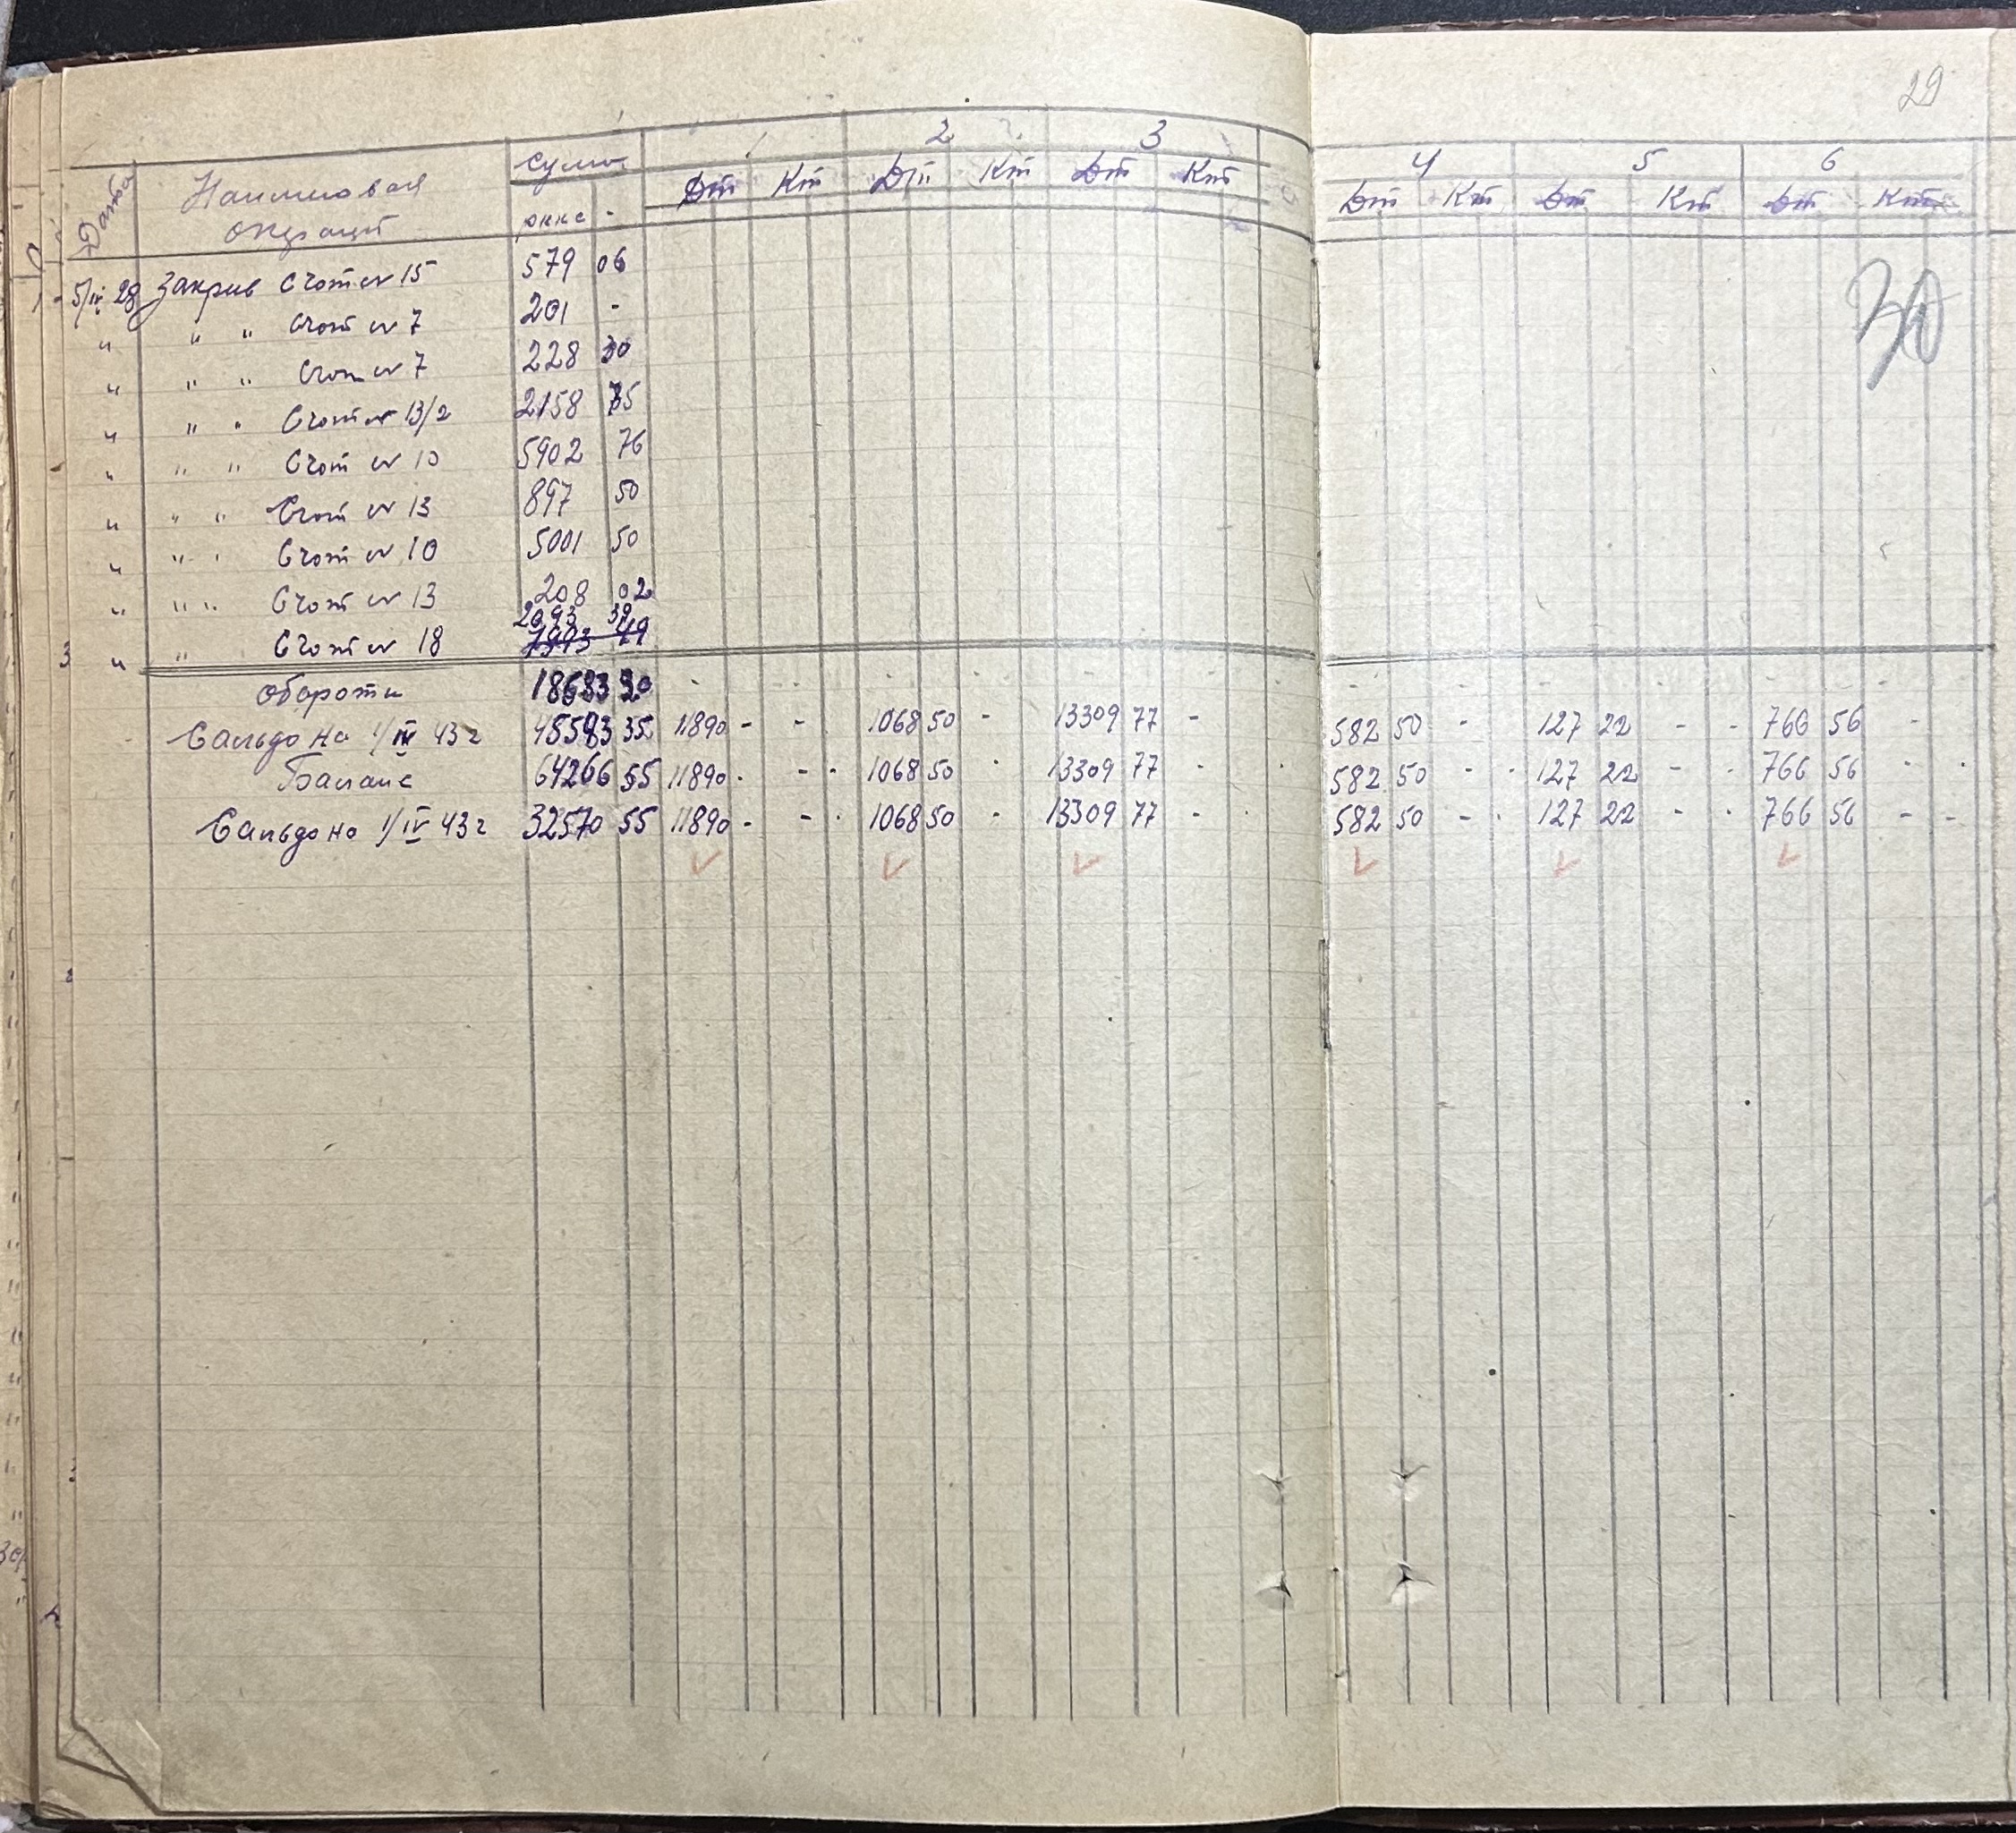 29
30
Дата Наименован операций сума 1 2 3 4 5 6
Дт Кт Дт Кт Дт Кт Дт Кт Дт Кт Дт Кт
5/IV 28 Закрив Счот № 15 579 06
" " " Счот № 7 201 -
" " " Счот № 7 228 30
" " " Счот № 13/2 2158 75
" " " Счот № 10 5902 76
" " " Счот № 13 897 50
" " " Счот № 10 5001 50
" " " Счот № 13 208 02
2093 39
" " Счот № 18
Обороти 18683 20 - - - - - -
Сальдо на 1/IV 43 г 45583 35 11890 - - 1068 50 - 13309 77 - 582 50 - 127 22 - - 766 56 -
Баланс 64266 55 11890 - - 1068 50 - 13309 77 - 582 50 - - 127 22 - - 766 56 - -
Сальдо на 1/IV 43 г 32570 55 11890 - - 1068 50 - 13309 77 - 582 50 - - 127 22 - - 766 56 - -